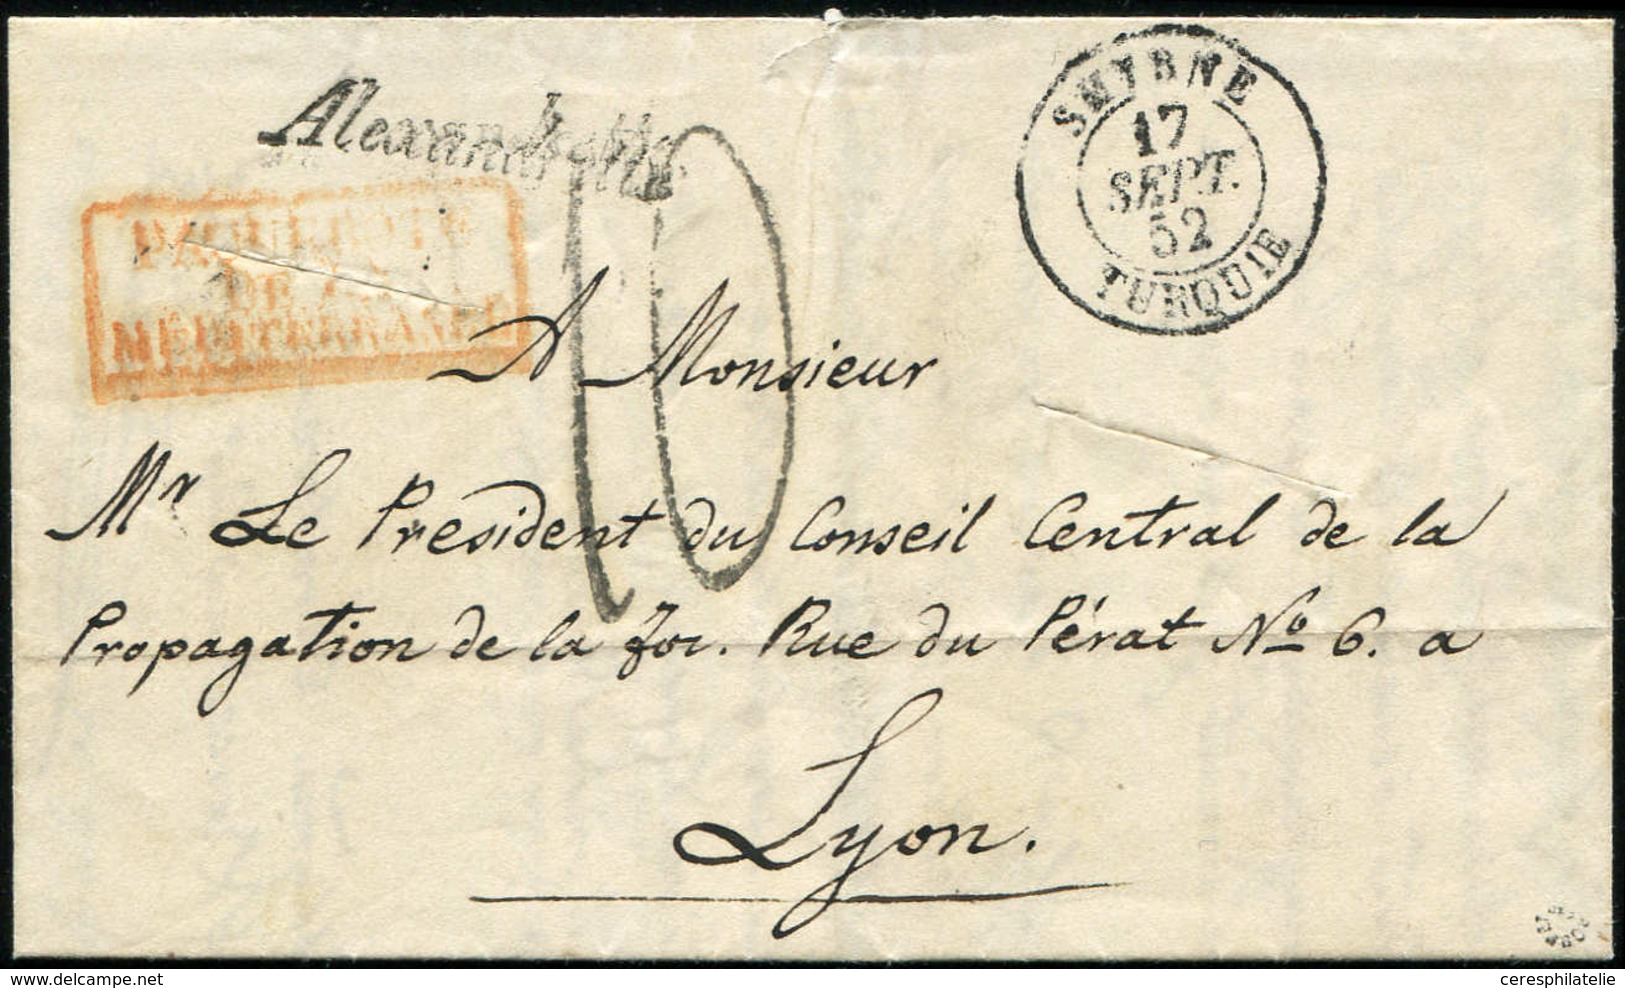 Alexandrette
SMYRNE
17
SEPT.
52
TURQUIE
PAQUEBOTS
DE LA
MÉDITERRANÉE
10
A Monsieur
Mr Le President du Conseil Central de la
Propagation de la foi. Rue du Pérat No 6. a
Lyon.
ceresphilatelie